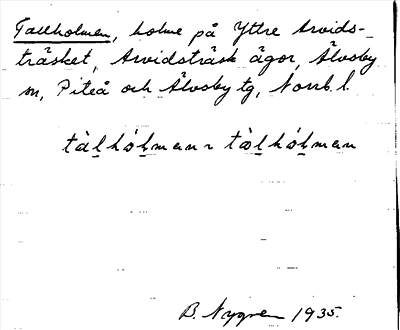 Tallholmen, holme på Yttre Arvids-
träsket, Arvidsträsk ägor, Älvsby
sn, Piteå och Älvsby tg, Norrb. l.
tàl̠hól̠man ~ tòl̠hól̠man
B. Nygren 1935.